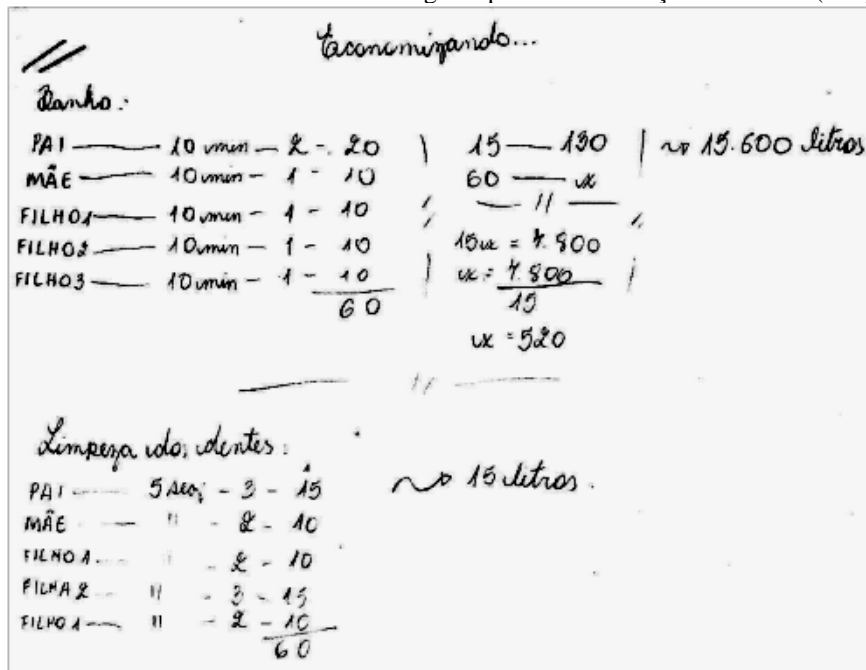 Economizando...
Banho:
PAI — 10 min — 2 - 20
MÃE — 10 min - 1 - 10
FILHO1 — 10 min - 1 - 10
FILHO2 — 10 min - 1 - 10
FILHO3 — 10 min - 1 - 10
60
15 — 130
60 — x
— // —
15x = 7.800
x = 7.800
15
x = 520
~> 15.600 litros
— // —
Limpeza dos dentes:
PAI — 5 seg - 3 - 15
MÃE — " - 2 - 10
FILHO 1 — " - 2 - 10
FILHA 2 — " - 3 - 15
FILHO 1 — " - 2 - 10
60
~> 15 litros.